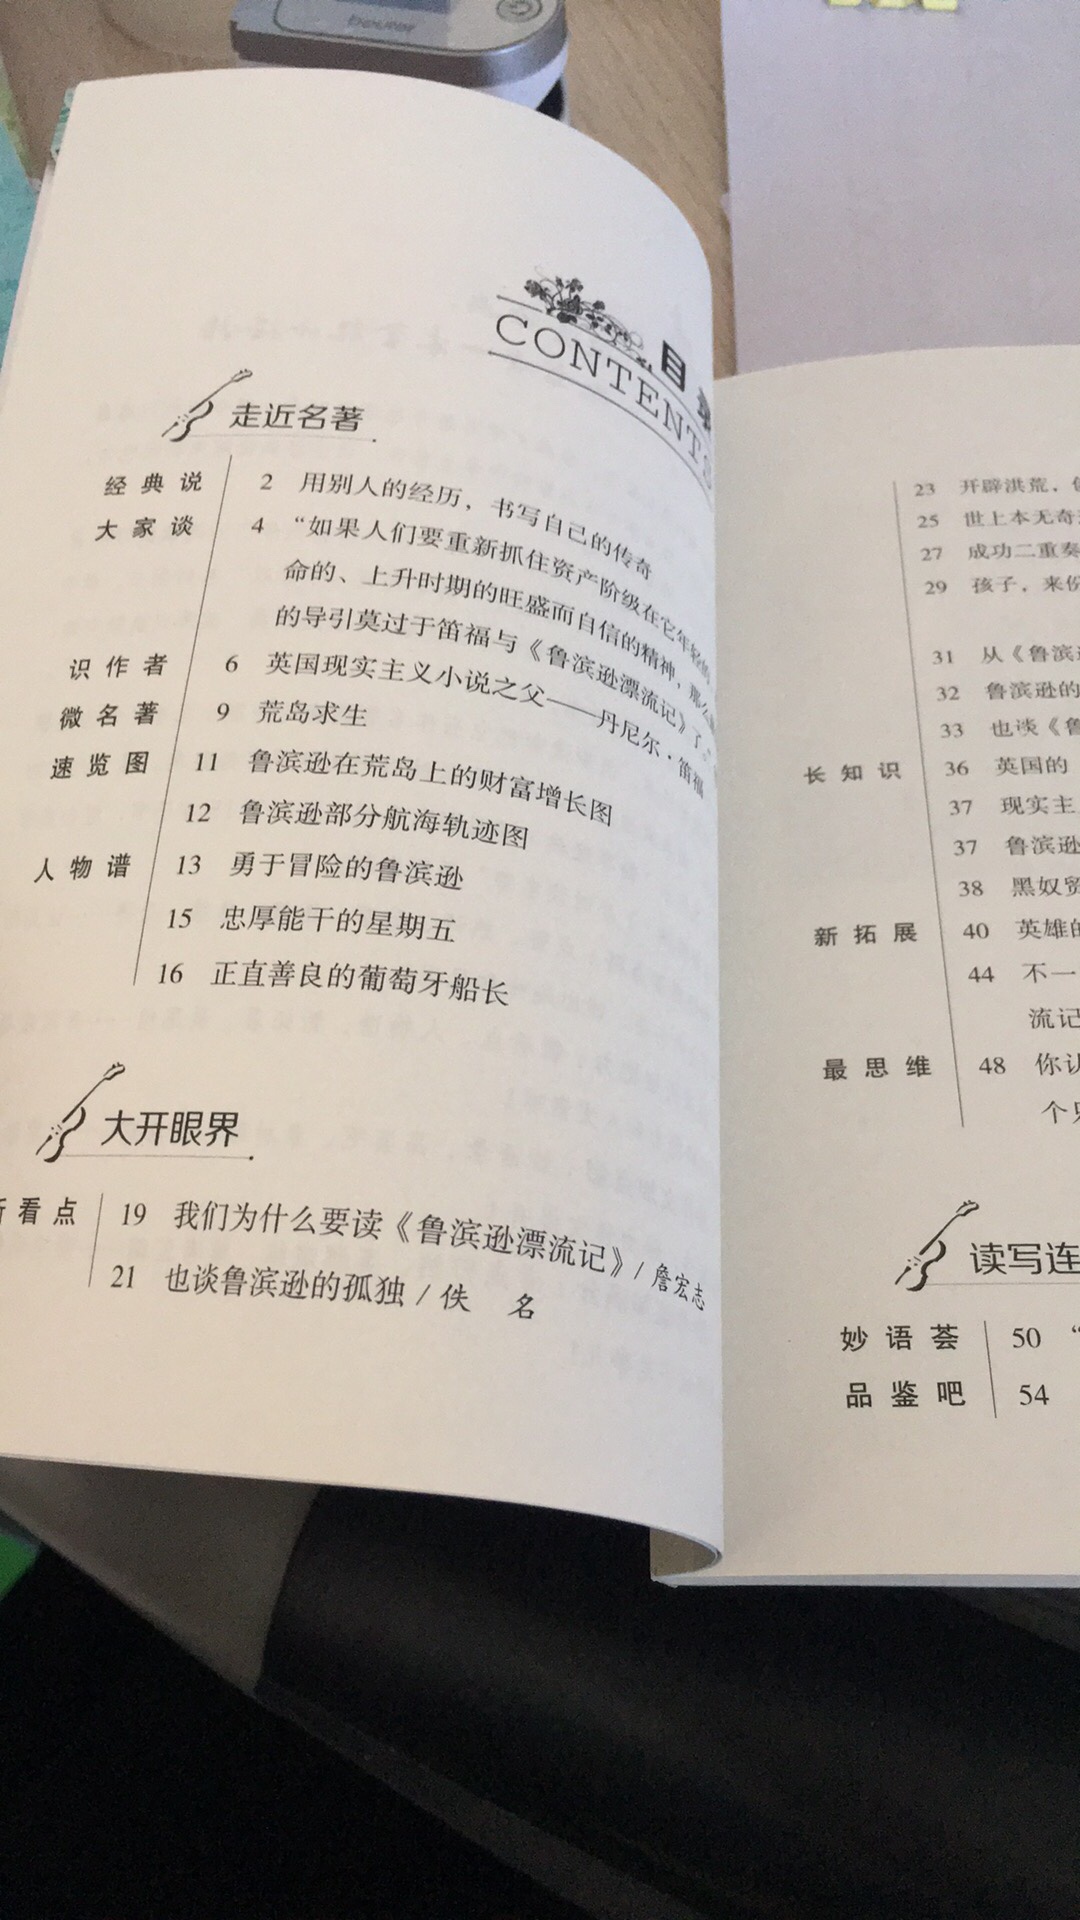 beurer
目
CONTENTS
走近名著
经典说 2 用别人的经历，书写自己的传奇
大家谈 4 “如果人们要重新抓住资产阶级在它年轻的、
命的、上升时期的旺盛而自信的精神，那么
的导引莫过于笛福与《鲁滨逊漂流记》了。”
识作者 6 英国现实主义小说之父——丹尼尔·笛福
微名著 9 荒岛求生
速览图 11 鲁滨逊在荒岛上的财富增长图
12 鲁滨逊部分航海轨迹图
人物谱 13 勇于冒险的鲁滨逊
15 忠厚能干的星期五
16 正直善良的葡萄牙船长
大开眼界
看点 19 我们为什么要读《鲁滨逊漂流记》/ 詹宏志
21 也谈鲁滨逊的孤独 / 佚 名
23 开辟洪荒，
25 世上本无奇
27 成功二重奏
29 孩子，来份
31 从《鲁滨
32 鲁滨逊的
33 也谈《鲁
长知识 36 英国的
37 现实主
37 鲁滨逊
38 黑奴贸
新拓展 40 英雄的
44 不一
流记
最思维 48 你认
个
读写连
妙语荟 50 “
品鉴吧 54